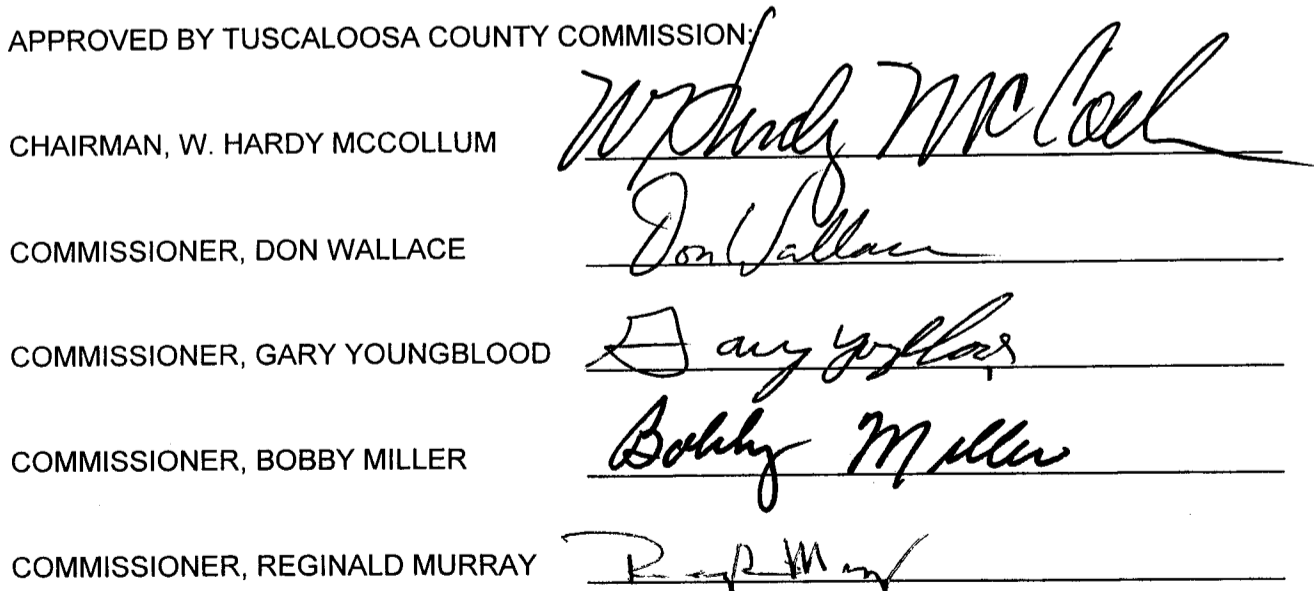 APPROVED BY TUSCALOOSA COUNTY COMMISSION:
CHAIRMAN, W. HARDY MCCOLLUM W Hardy McColl
COMMISSIONER, DON WALLACE Don Wallace
COMMISSIONER, GARY YOUNGBLOOD Gary
COMMISSIONER, BOBBY MILLER Bobby Miller
COMMISSIONER, REGINALD MURRAY